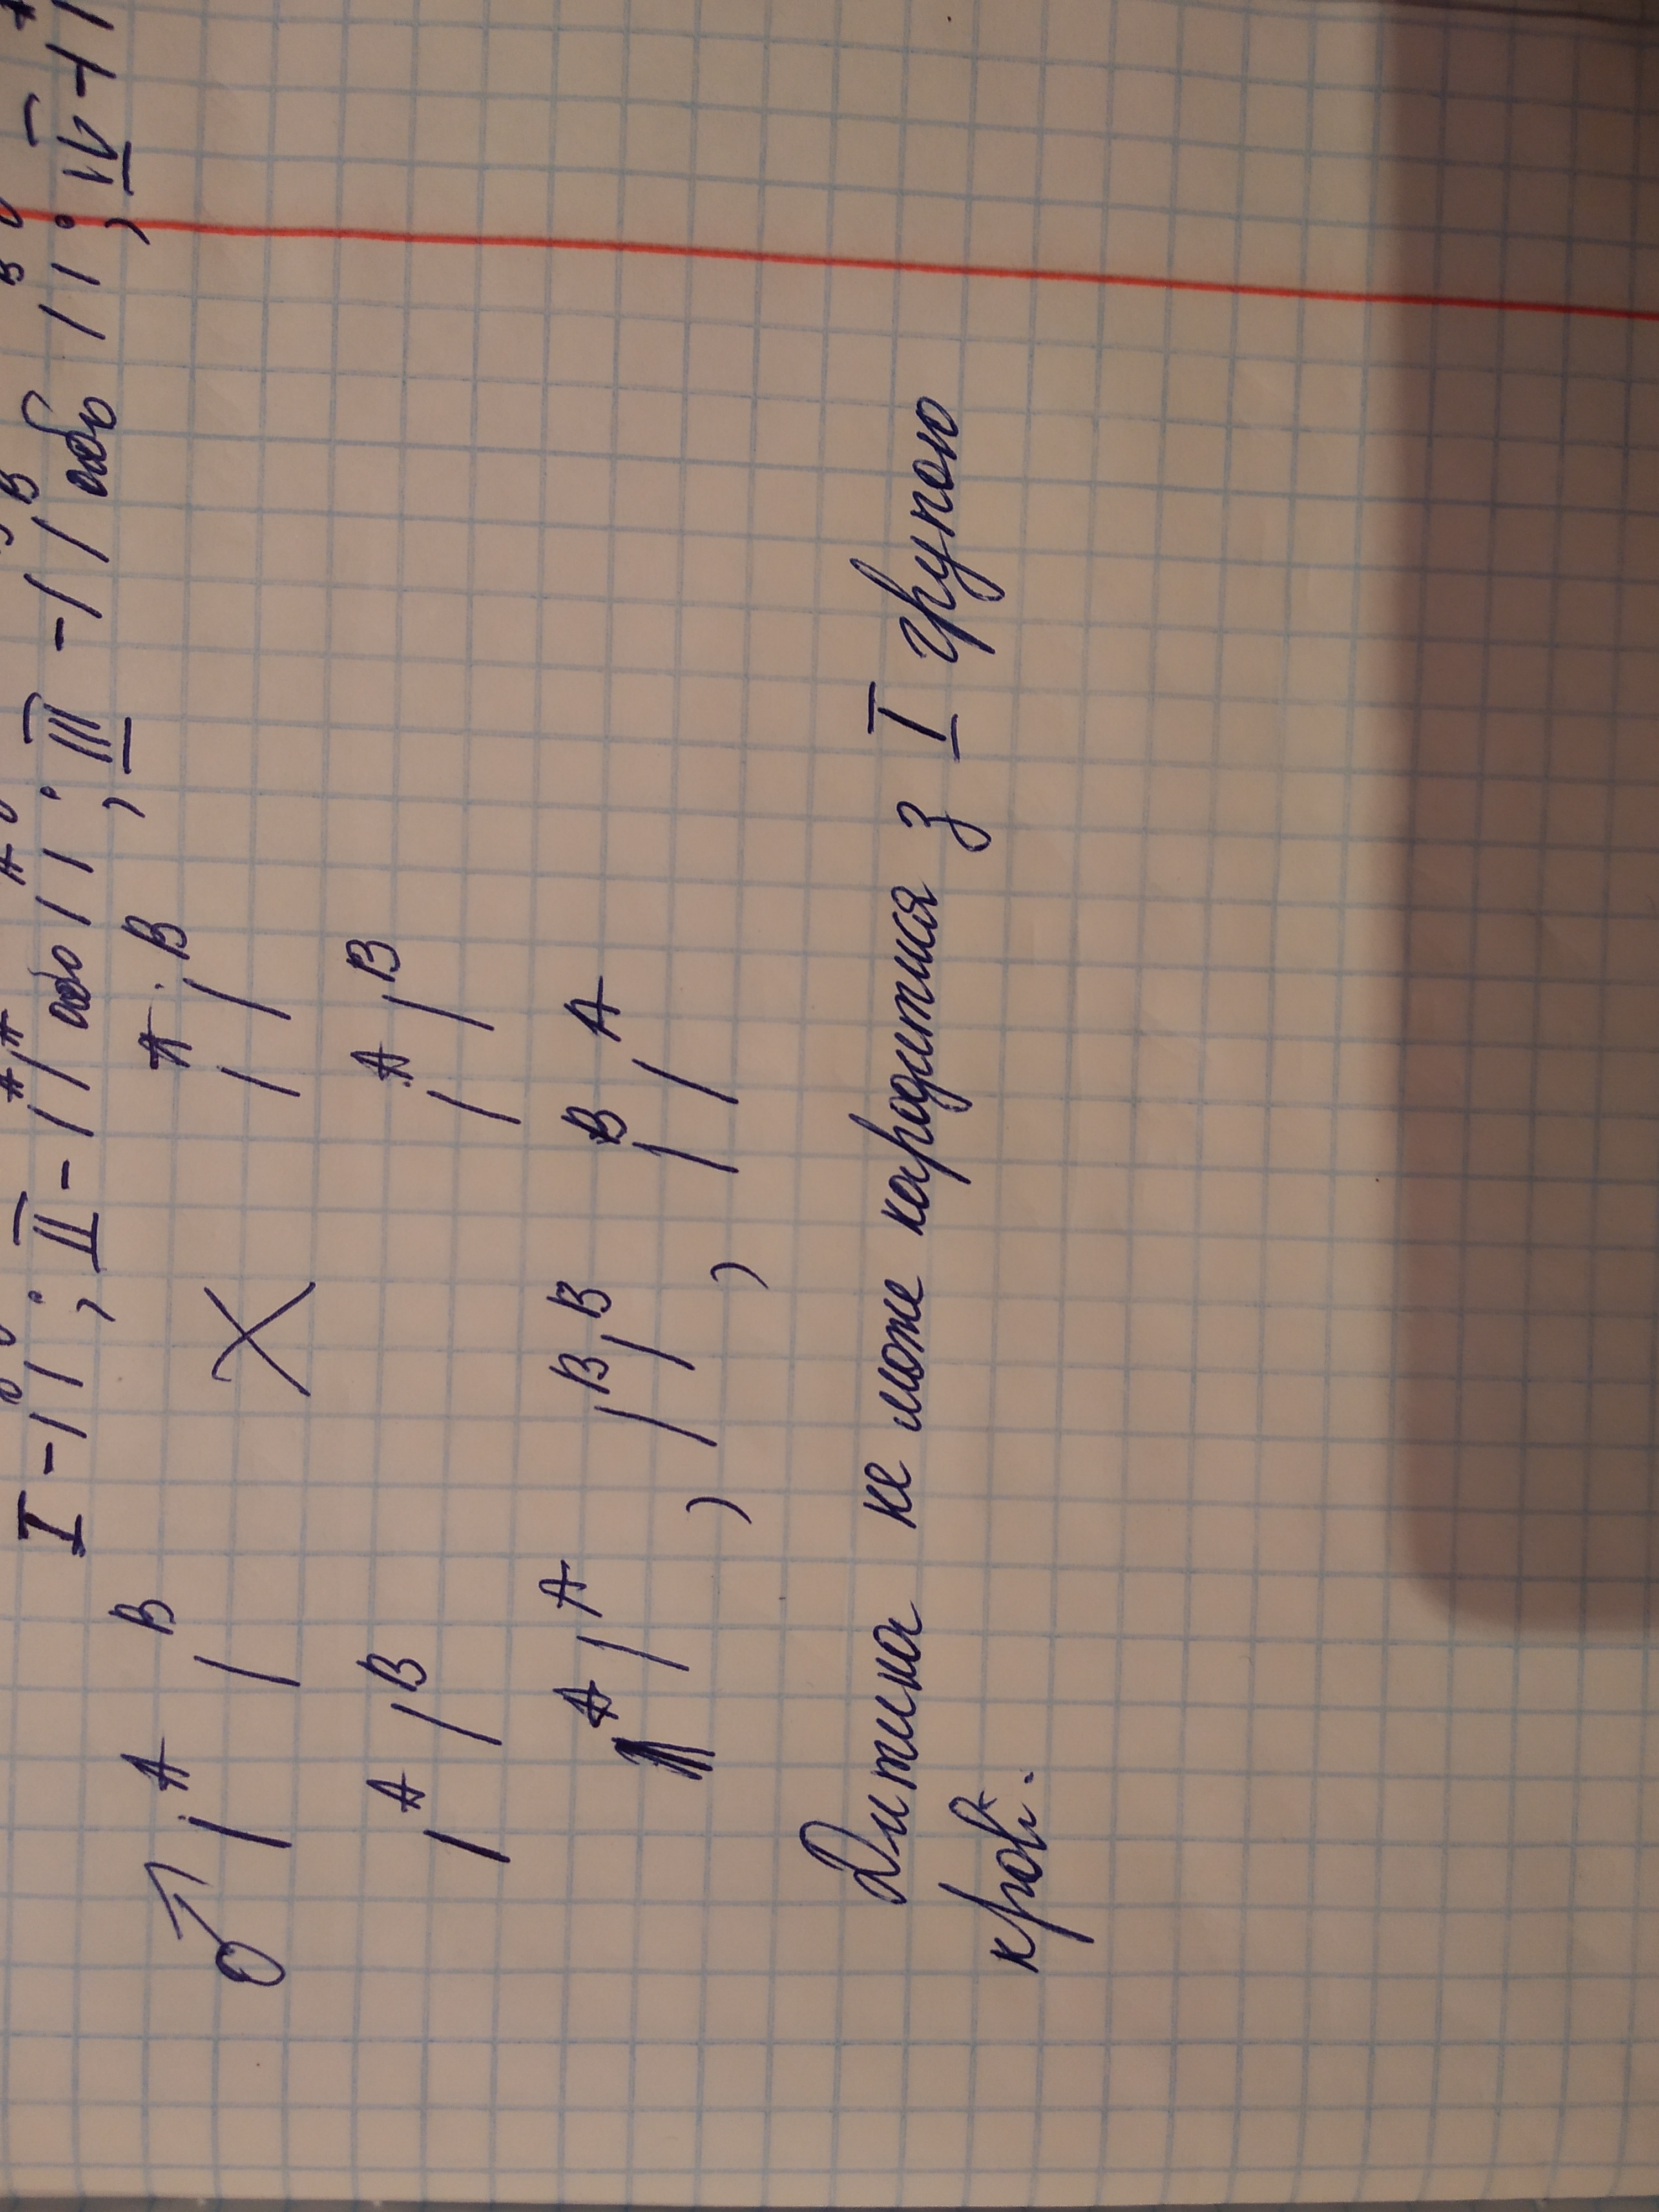 I - I⁰I⁰; II - IᴬIᴬ або IᴬI⁰; III - IᴮIᴮ або IᴮI⁰; IV - Iᴬ
♂ Iᴬ Iᴮ X Iᴬ Iᴮ
Iᴬ Iᴮ Iᴬ Iᴮ
IᴬIᴬ, IᴮIᴮ, IᴮIᴬ
Дитина не може народитися з I групою
крові.